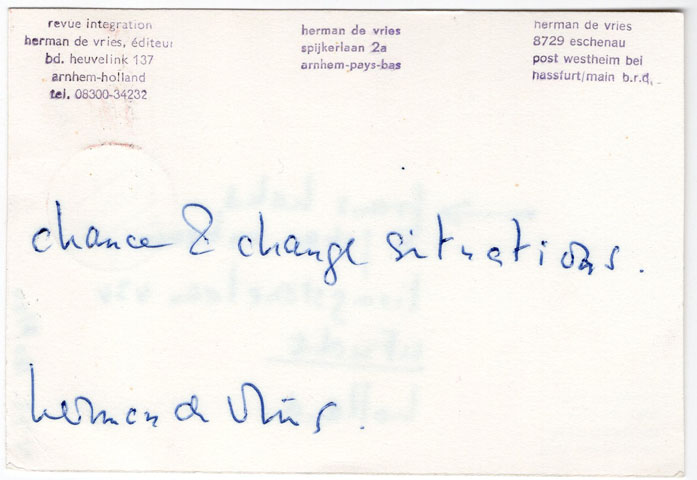 revue integration
herman de vries, éditeur
bd. heuvelink 137
arnhem-holland
tel. 08300-34232
herman de vries
spijkerlaan 2a
arnhem-pays-bas
herman de vries
8729 eschenau
post westheim bei
hassfurt/main b.r.d.
chance & change situations.
herman de vries.